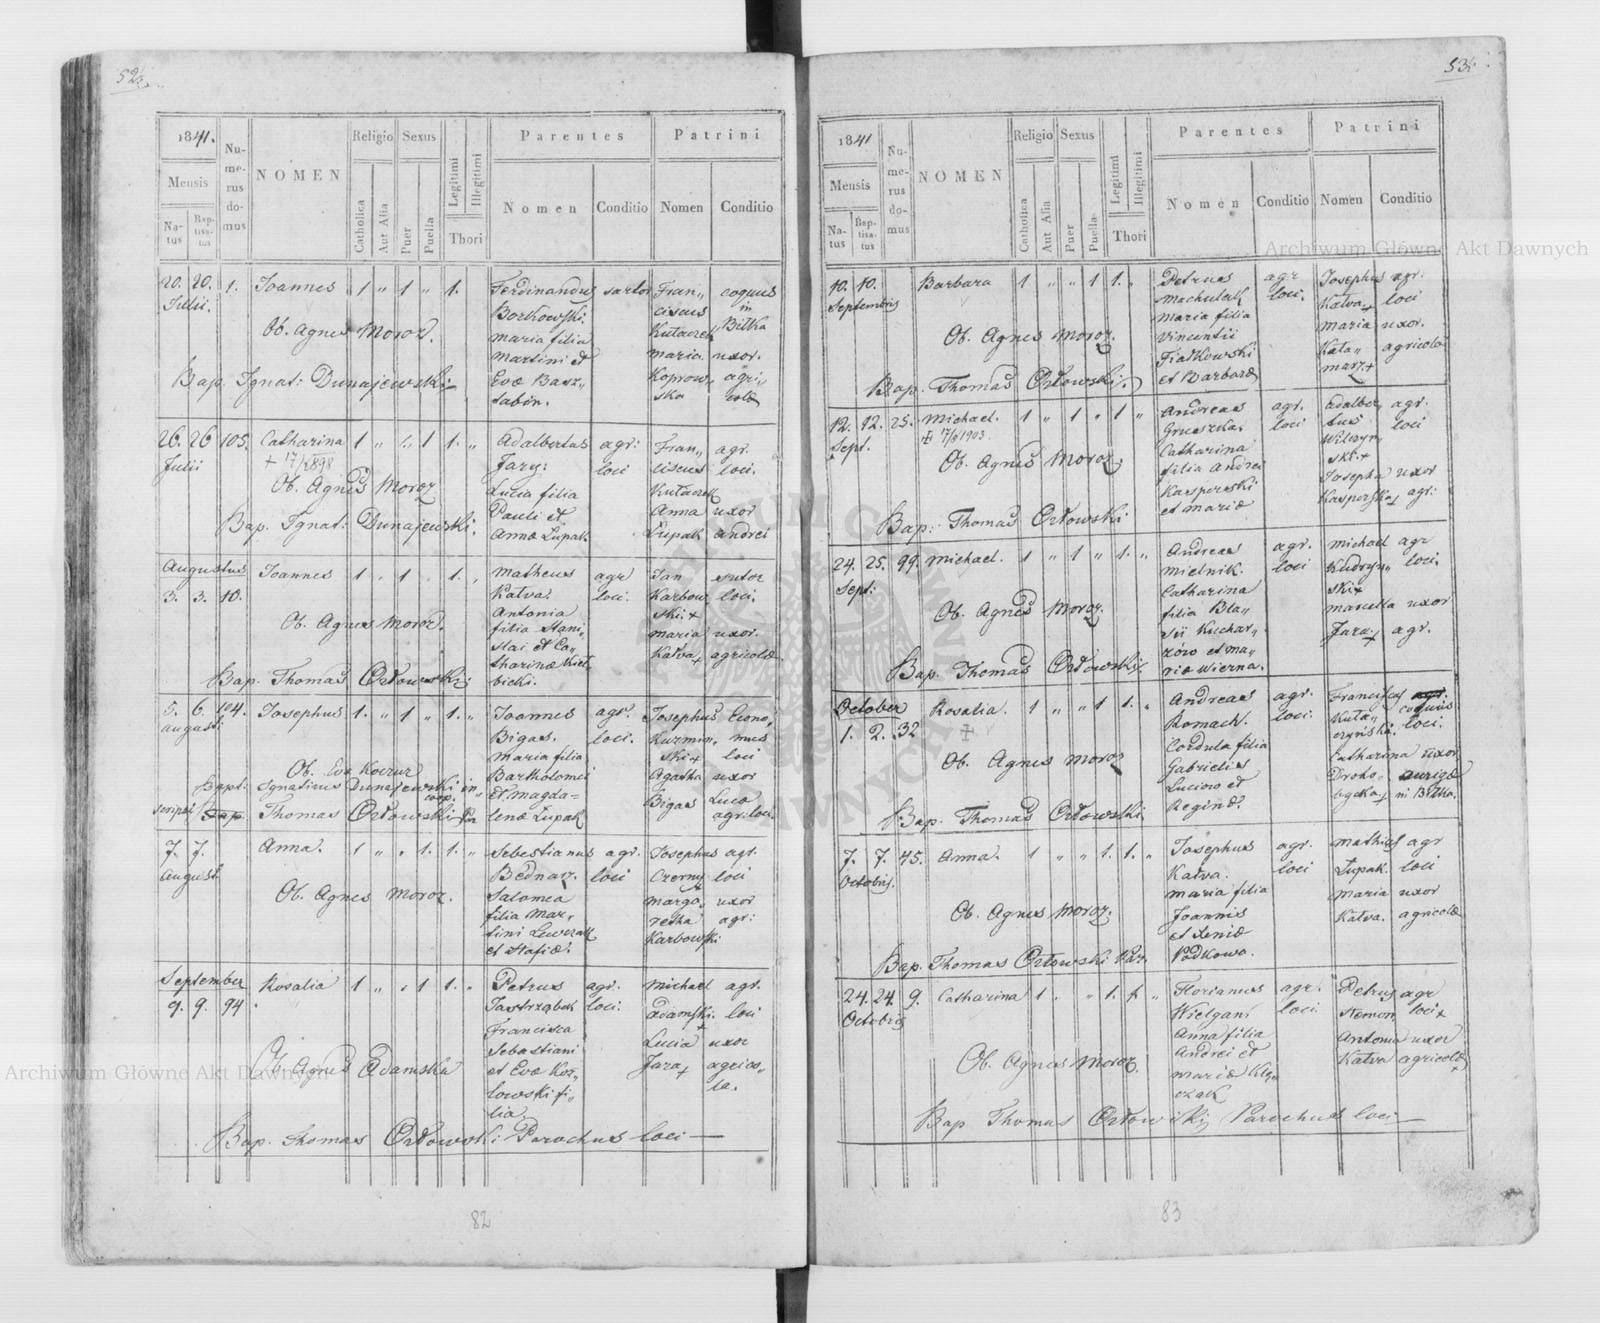 52.
1841.
Mensis
Natus
Baptisatus
Numerus domus
NOMEN
Religio
Catholica
Aut Alia
Sexus
Puer
Puella
Legitimi
Illegitimi
Thori
Parentes
Nomen
Conditio
Patrini
Nomen
Conditio
20. 20. 1. Joannes 1 " 1 " 1. Ferdinandus sartor Fran,, coquus
Julii. Borkowski. ciscus in
Ob. Agnes Moroz. Maria filia Kutaczek Bilka
Martini et Maria uxor.
Bap. Ignat: Dunajewski Evæ Basz,, Koprow,, agri,,
tabin. ska colæ
26. 26 105. Catharina 1 " " 1 1. " Adalbertus agr: Fran,, agr.
Julii + 17/ 1898 Jary: loci ciscus loci.
Ob. Agnes Moroz Lucia filia Kutaczek
Pauli et Anna uxor
Bap. Ignat: Dunajewski. Annæ Łupak Łupak Andrei
Augustus Joannes 1 . 1 . 1. " Matheus agr Jan sutor
3. 3. 10. Kalva. loci. Karbow,, loci.
Ob. Agnes Moroz. Antonia ski +
filia Stani,, Maria uxor.
slai et Ca,, Kalva + agricolæ
Bap. Thomas Orłowski tharinæ
bicki.
5. 6. 104. Josephus 1. " 1 " 1. " Joannes agr. Josephus Econo,,
august. Bigas. loci. Kuzmin,, mus
Maria filia ski + loci
Ob. Eva Koczur Bartholomei Agatha uxor
Bapt: Ignatius Dunajewski in et Magda= Bigas Luca
coop.
script Bap. Thomas Orłowski Par lenæ Łupak agr: loci.
7. 7. Anna. 1 " " 1. 1. " Sebestianus agr. Josephus agr.
August Bednarz. loci Czerny loci
Ob. Agnes Moroz. Salomea Marga,, uxor
filia Mar,, retha agr:
tini Lewczak Karbowski
et Stafiæ.
September Rosalia 1 " . 1 1. " Petrus agr. Michael agr.
9. 9. 94 Jastrząbek loci. Adamski. loci
Francisca +
Sebastiani Lucia uxor
Ob. Agnes Adamska et Evæ Koz,, Jara + agrico,,
lowski fi,, la.
lia.
Bap. Thomas Orłowski Parochus loci —
82
53.
1841
Mensis
Natus
Baptisatus
Numerus domus
NOMEN
Religio
Catholica
Aut Alia
Sexus
Puer
Puella
Legitimi
Illegitimi
Thori
Parentes
Nomen
Conditio
Patrini
Nomen
Conditio
10. 10. Barbara 1 " " 1 1. " Petrus agr Josephus agr.
Septembris Machulak loci. Kalva + loci
Maria filia Maria uxor.
Ob. Agnes Moroz. Vincentii Kała,, agricolæ
Fiałkowski marz. +
Bap. Thomas Orłowski. et Barbaræ
12. 12. 25. Michael. 1 " 1 " 1 " Andreas agr. Adalber,, agr.
Sept. + 17/8 1903. Gruszka. loci tus loci
Ob. Agnes Moroz. Catharina Wilczyn,,
filia Andrei ski. +
Kasperski Josepha uxor
et Mariæ Kasperska + agr:
Bap: Thomas Orłowski
24. 25. 99. Michael. 1 " 1 " 1. " Andreas agr. Michael agr
Sept: Mielnik. loci Kudryn,, loci.
Catharina ski +
Ob. Agnes Moroz. filia Bla,, Marcella uxor
sii Kuchar,, Jara + agr.
zów et Ma,,
Bap. Thomas Orłowski. riæ Wierna.
October Rosalia. 1 " " 1 1. " Andreas agr. Franciscus agr.
1. 2. 32 + Romach. loci. Kuta,, coquus
Cordula filia czynski. loci.
Ob. Agnes Moroz Gabrielis Catharina uxor
Luciow et Droho,, aurigæ
Reginæ. bycka + in Bilka.
Bap. Thomas Orłowski.
7. 7. 45. Anna. 1 " " 1. 1. " Josephus agr. Mathias agr
Octobris. Kalva. loci Łupak. loci
Maria filia Maria uxor
Ob. Agnes Moroz. Joannis Kalva. agricolæ
et Xeniæ
Bap. Thomas Orłowski Par. Podkowa.
24. 24. 9. Catharina 1 . " 1. 1. " Florianus agr. Petrus agr
Octobris Wielgani loci. Stemon, loci +
Anna filia Antonia uxor
Ob. Agnes Moroz. Andrei et Kalva agricolæ +
Mariæ Klę,,
czak
Bap Thomas Orłowski Parochus loci —
83
Archiwum Główne Akt Dawnych
Archiwum Główne Akt Dawnych
ARCHIWUM GŁÓWNE AKT DAWNYCH